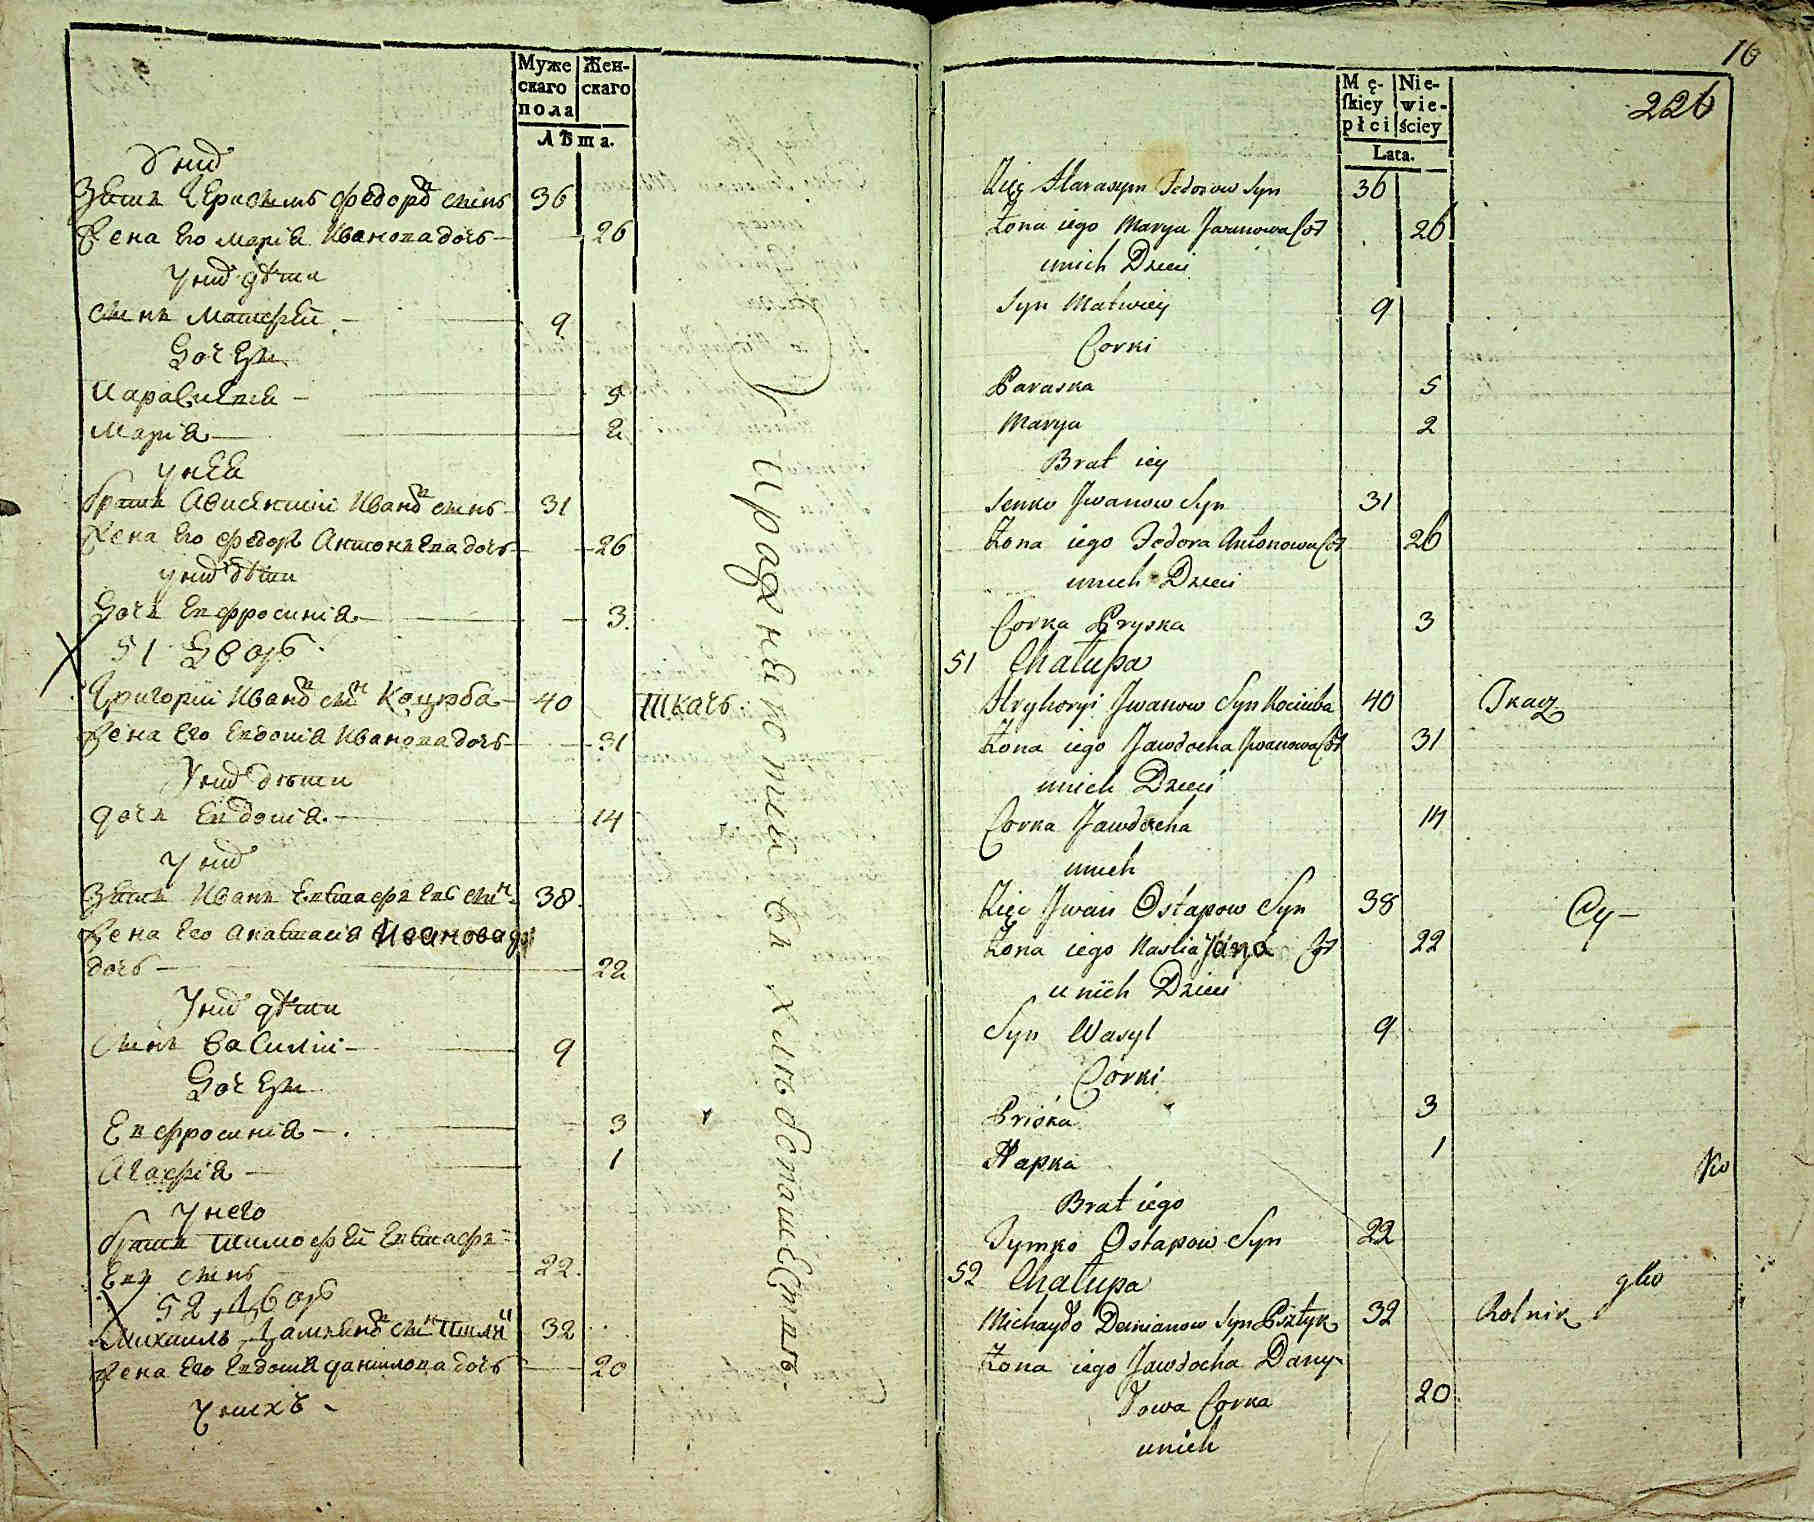 Муже Жен-
скаго скаго
пола
Лѣта.
У них
Зять Герасимъ Федоров синъ 36
Жена Его Марія Иванова дочь 26
У них дѣти
Синъ Матфей 9
Дочери
Параскевія 5
Марія 2
У нее
братъ Авксентий Иванов синъ 31
Жена Его Федора Антонъева дочь 26
у них дѣти
Дочь Евфросинія 3
51 Дворъ
Григорий Иванов син Коцюба 40 ткачъ
Жена Его Евдокия Иванова дочь 31
У них дѣти
дочь Евдокия 14
У них
Зять Иванъ Евстафьевъ син 38
Жена Его Анастасия Иванова
дочь 22
У них дѣти
Синъ Василий 9
Дочери
Евфросинія 3
Агафія 1
У него
братъ Тимофей Евстафъ-
евъ синъ 22
52 Дворъ
Михаилъ Дамянов син 32
Жена Его Евдокия Данилова дочь 20
У нихъ
Упражняются въ хлѣбопашествѣ
16
226
Mę- Nie-
ſkiey wie-
płci ściey
Lata.
Zięć Harasym Fedorow Syn 36
Zona iego Marya Jwanowa Cor 26
unich Dzieci
Syn Matwiey 9
Corki
Paraska 5
Marya 2
Brat iey
Senko Jwanow Syn 31
Zona iego Fedora Antonowa Cor 26
unich Dzieci
Corka Pryska 3
51 Chałupa
Hryhoryi Jwanow Syn Kociuba 40 Tkacz
Zona iego Jawdocha Jwanowa Cor 31
unich Dzieci
Corka Jawdocha 14
unich
Zięć Jwan Ostapow Syn 38 Cy-
Zona iego Nastia Cor 22
unich Dzieci
Syn Wasyl 9
Córki
Priska 3
Hapka 1
Brat iego
Tymko Ostapow Syn 22
52 Chałupa
Michayło Demianow Syn 32 Rolnik
Zona iego Jawdocha Dany-
łowa Corka 20
unich